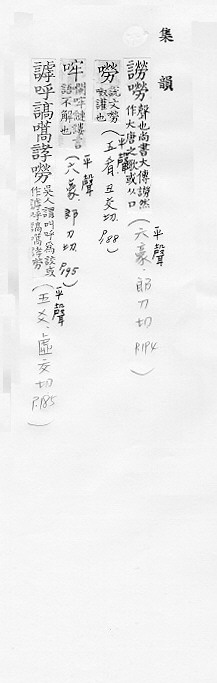 集韻
謗嘮 聲也尚書大傳謗然作大唐之歌或从口（平聲 六豪．郎刀切 P.194）
嘮 說文嘮呶讙也（平聲 五肴 丑交切．P.188）
哰 㘓哰謰謱言語不解也（平聲 六豪．郎刀切 P.195）
謼呼謞嗃詨嘮 吳人謂叫呼爲詨或作謼呼謞嗃嘮（平聲 五爻．虛交切 P.185）